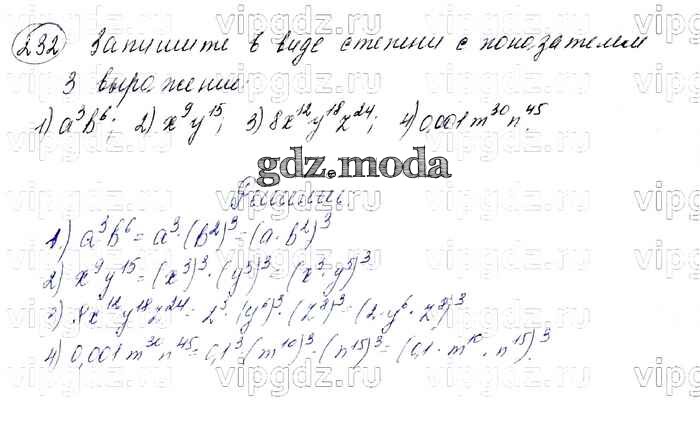 vipgdz.ru vipgdz.ru vipgdz.ru vipgdz.ru
232 Запишите в виде степени с показателем
3 выражение:
1) a³b⁶; 2) x⁹y¹⁵; 3) 8x¹²y¹⁸z²⁴; 4) 0,001m³⁰n⁴⁵.
gdz.moda
1.) a³b⁶ = a³·(b²)³ = (a·b²)³
2) x⁹y¹⁵ = (x³)³·(y⁵)³ = (x³·y⁵)³
3) 8x¹²y¹⁸z²⁴ = 2³·(y⁶)³·(z⁸)³ = (2·y⁶·z⁸)³
4) 0,001m³⁰n⁴⁵ = 0,1³·(m¹⁰)³·(n¹⁵)³ = (0,1·m¹⁰·n¹⁵)³.